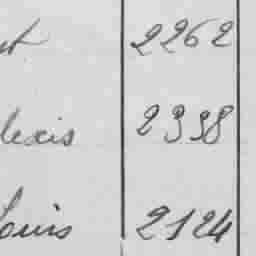 2262
lexis 2398
Louis 2124